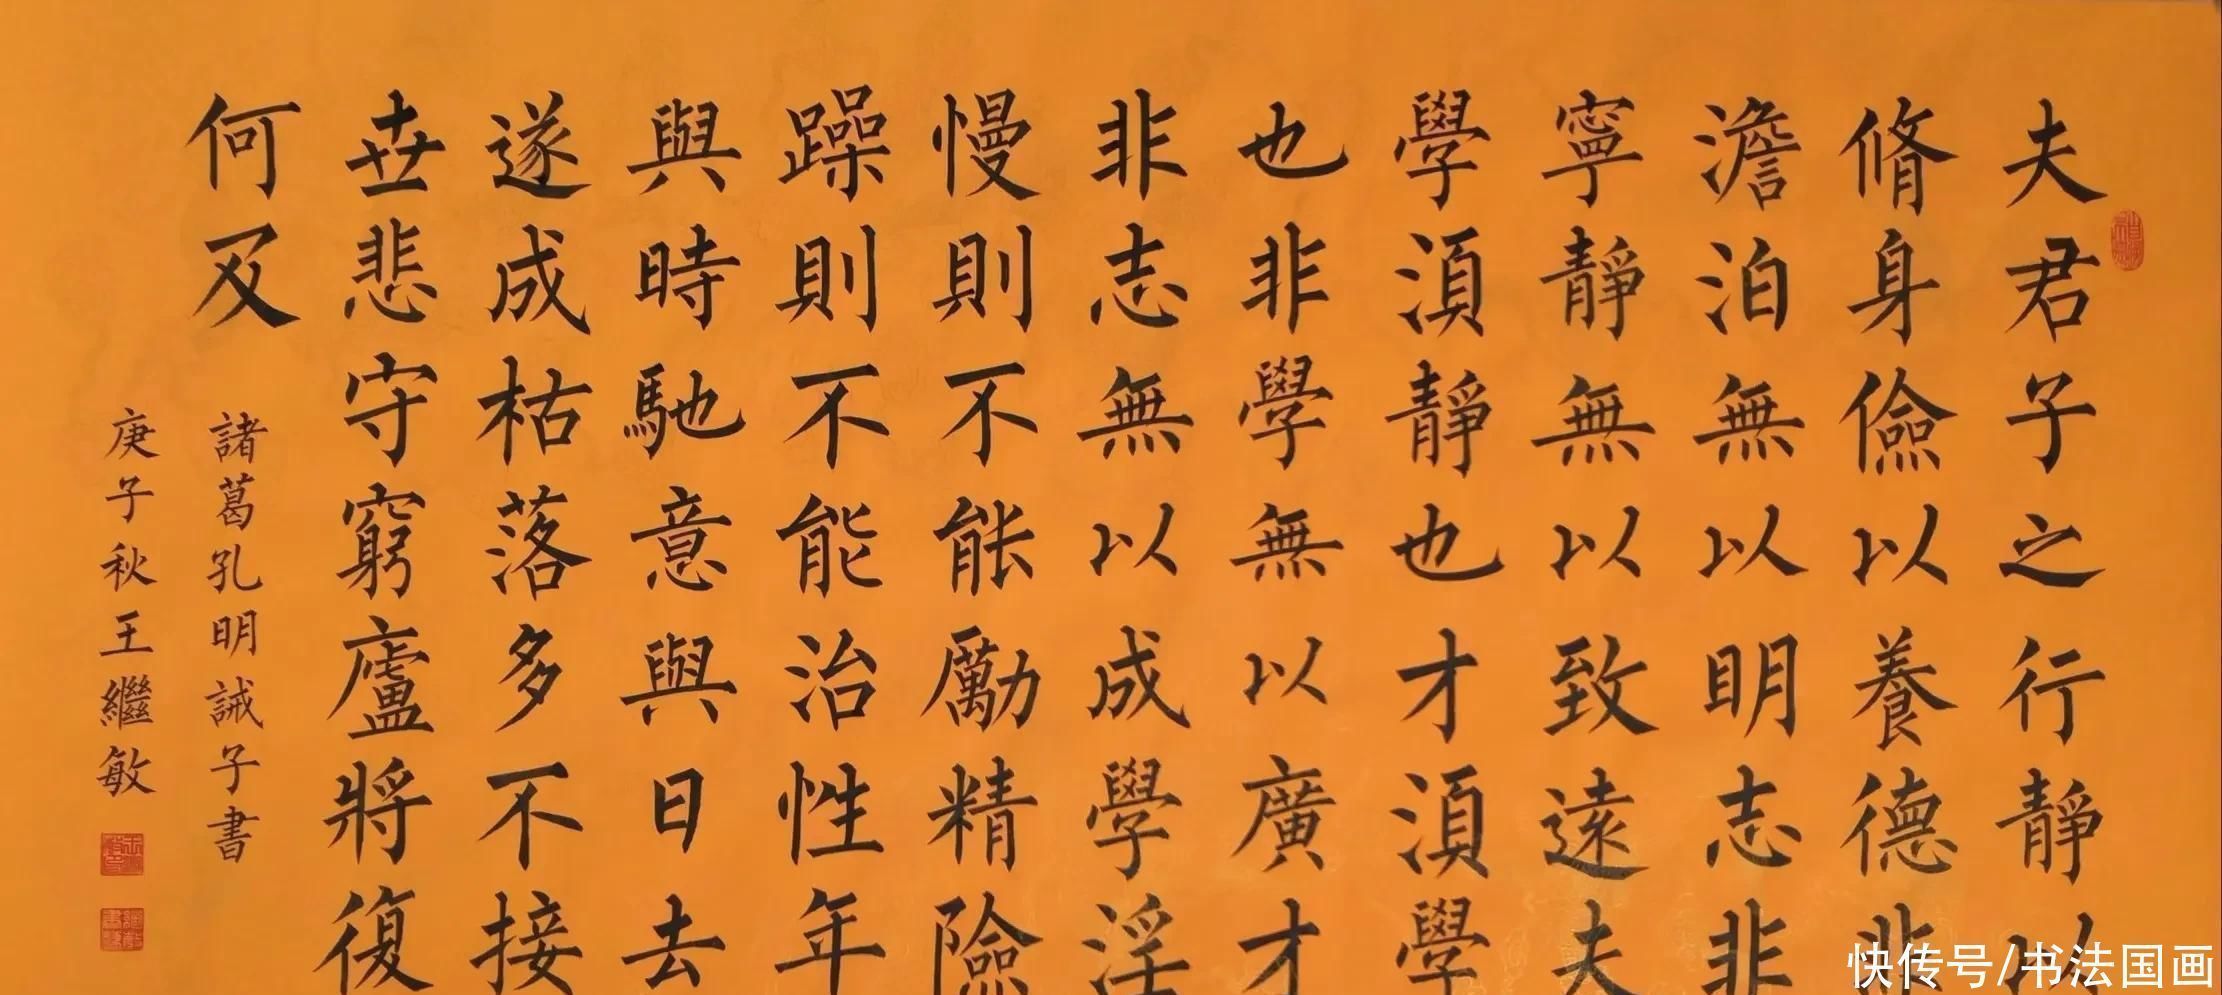 夫君子之行静以
脩身儉以養德非
澹泊無以明志非
寧静無以致遠夫
學須静也才須學
也非學無以廣才
非志無以成學淫
慢則不能勵精險
躁則不能治性年
與時馳意與日去
遂成枯落多不接
世悲守窮廬將復
何及
諸葛孔明誡子書
庚子秋王繼敏
快传号/书法国画